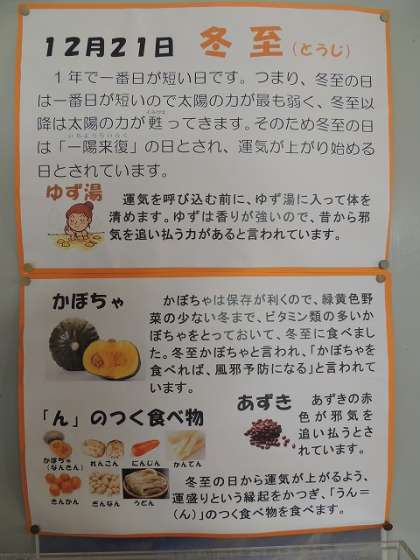 12月21日 冬至(とうじ)
1年で一番日が短い日です。つまり、冬至の日
は一番日が短いので太陽の力が最も弱く、冬至以
降は太陽の力が甦ってきます。そのため冬至の日
は「一陽来復」の日とされ、運気が上がり始める
日とされています。
ゆず湯
運気を呼び込む前に、ゆず湯に入って体を
清めます。ゆずは香りが強いので、昔から邪
気を追い払う力があると言われています。
かぼちゃ
かぼちゃは保存が利くので、緑黄色野
菜の少ない冬まで、ビタミン類の多いか
ぼちゃをとっておいて、冬至に食べまし
た。冬至かぼちゃと言われ、「かぼちゃを
食べれば、風邪予防になる」と言われて
います。
あずき
あずきの赤
色が邪気を
追い払うとさ
れています。
「ん」のつく食べ物
かぼちゃ
(なんきん)
れんこん
にんじん
かんてん
きんかん
ぎんなん
うどん
冬至の日から運気が上がるよう、
運盛りという縁起をかつぎ、「うん=
(ん)」のつく食べ物を食べます。